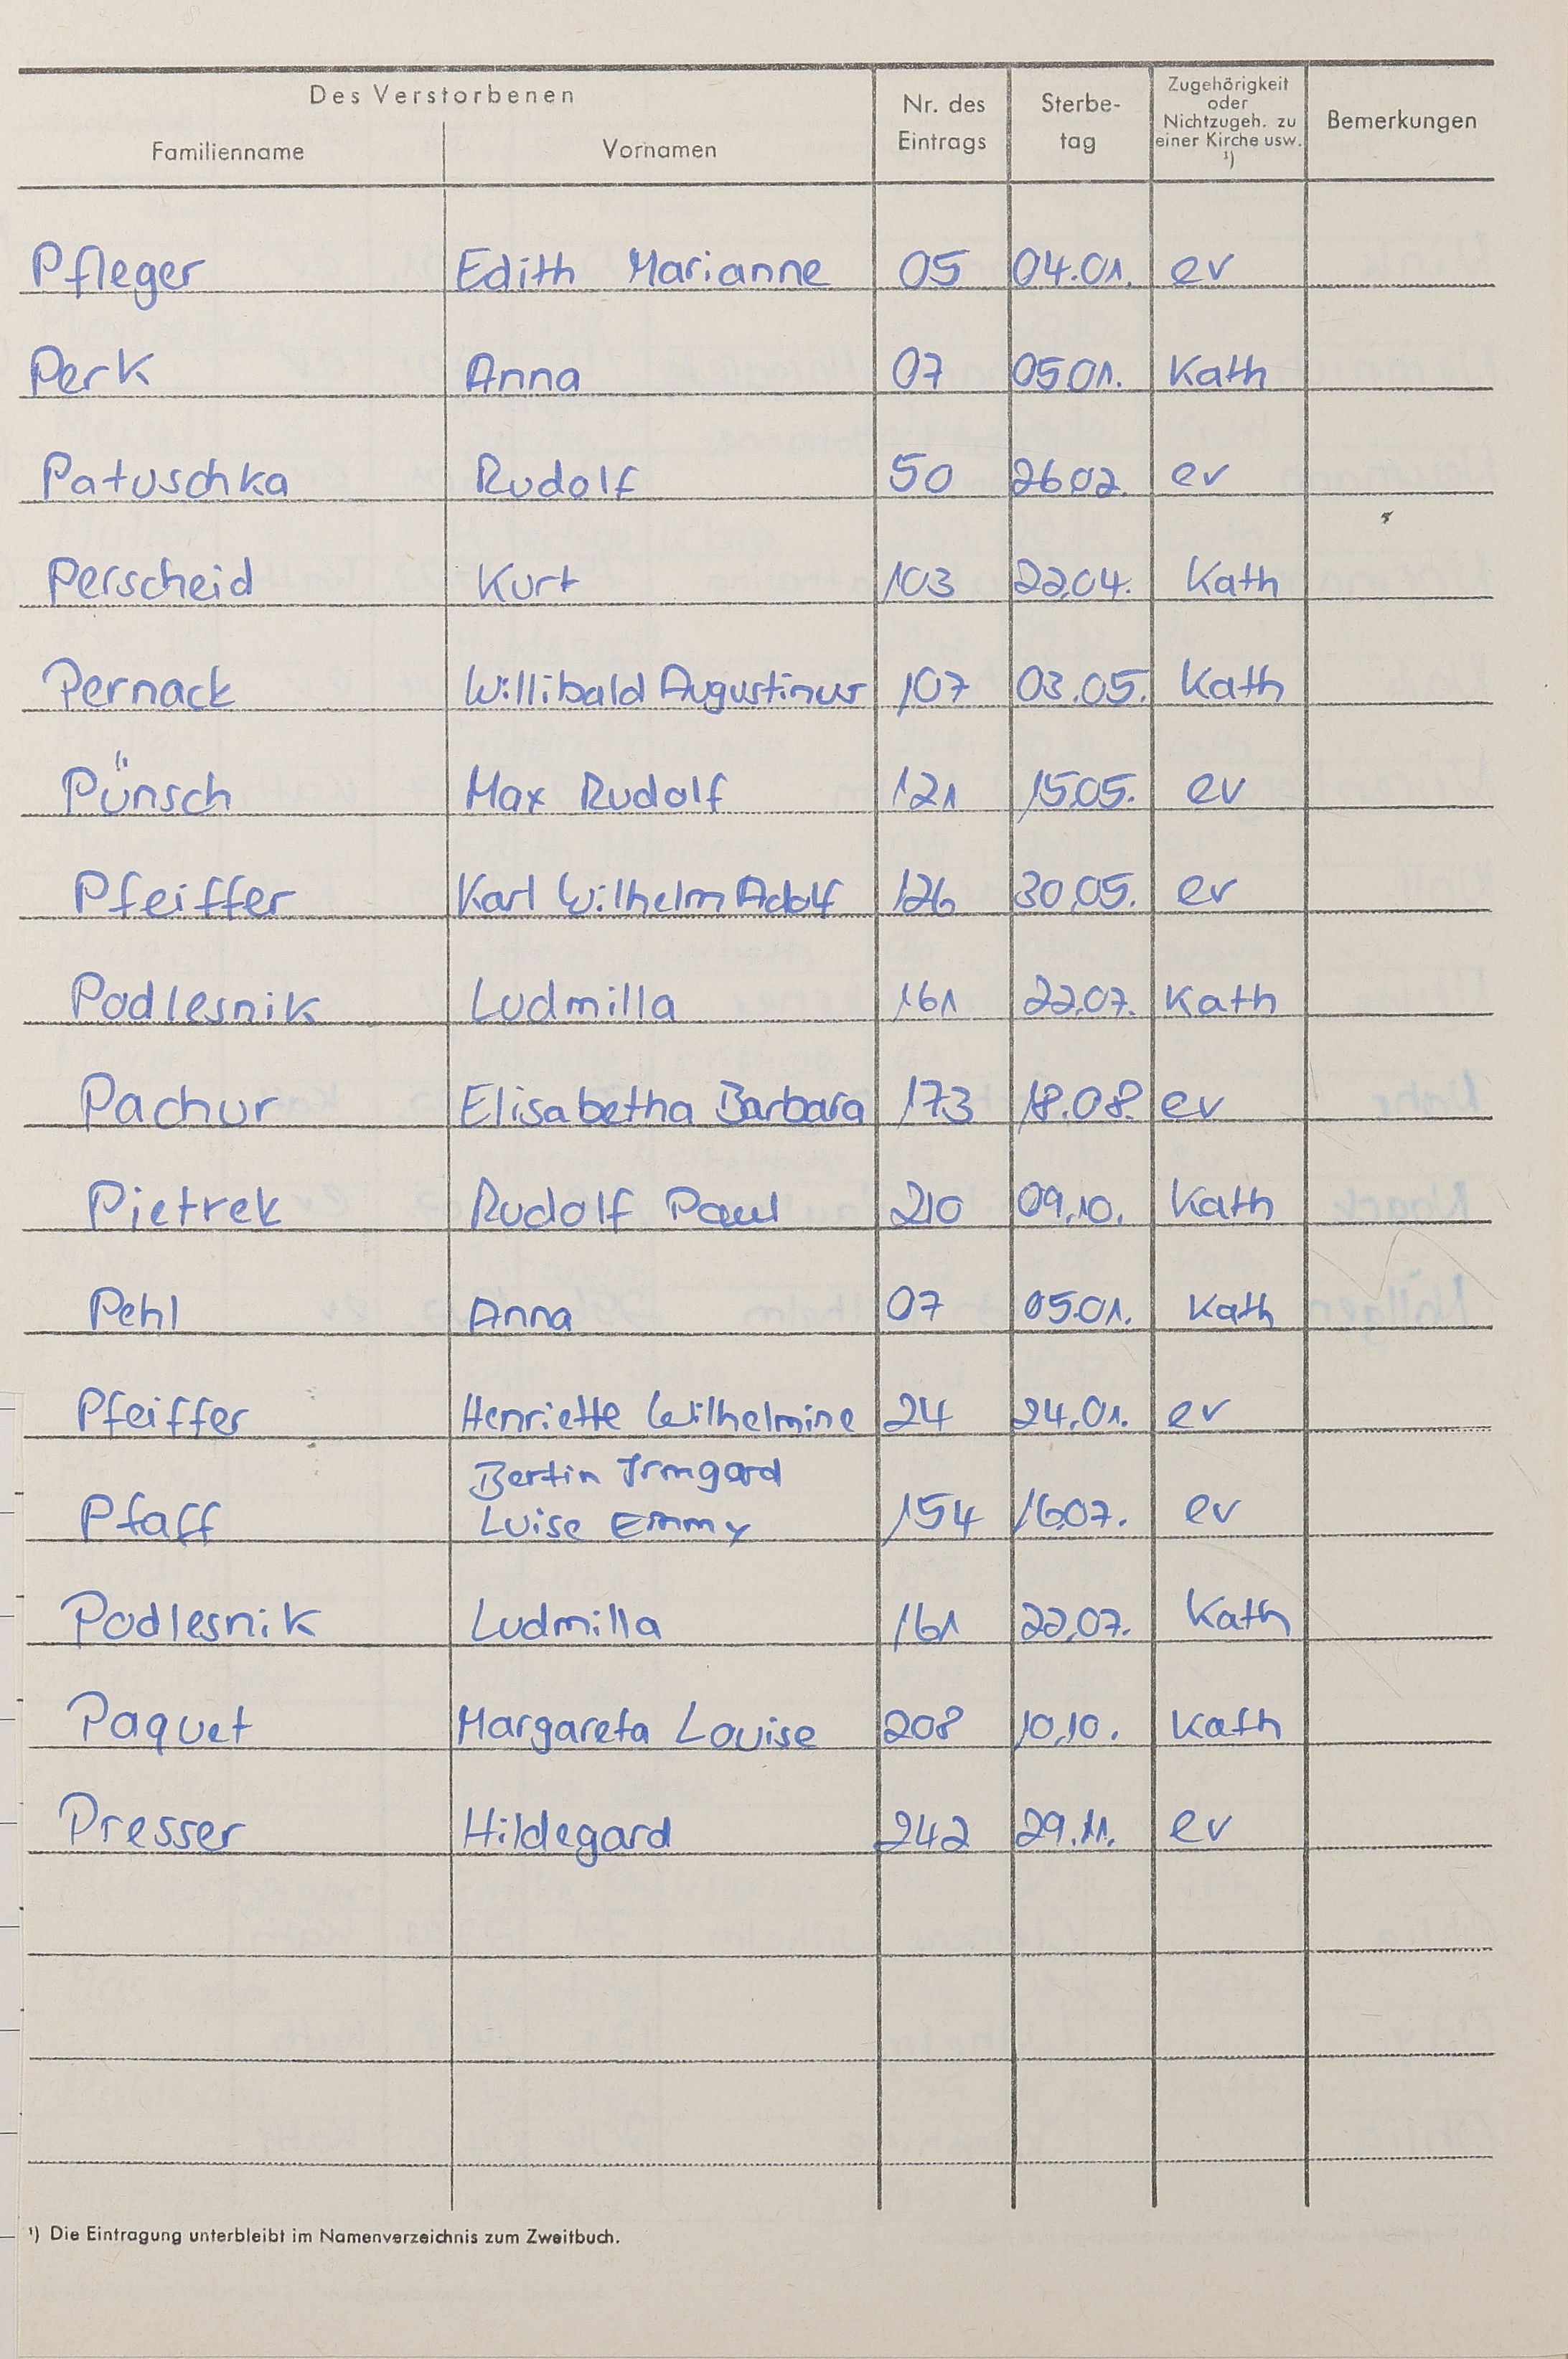 Des Verstorbenen
Familienname Vornamen Nr. des Eintrags Sterbe- tag Zugehörigkeit oder Nichtzugeh. zu einer Kirche usw. ¹) Bemerkungen
Pfleger Edith Marianne 05 04.01. ev
Perk Anna 07 05.01. Kath
Patuschka Rudolf 50 26.02. ev
Perscheid Kurt 103 22.04. Kath
Pernack Willibald Augustinus 107 03.05. Kath
Pünsch Max Rudolf 121 15.05. ev
Pfeiffer Karl Wilhelm Adolf 126 30.05. ev
Podlesnik Ludmilla 161 22.07. Kath
Pachur Elisabetha Barbara 173 18.08. ev
Pietrek Rudolf Paul 210 09.10. Kath
Pehl Anna 07 05.01. Kath
Pfeiffer Henriette Wilhelmine 24 24.01. ev
Bertin Irmgard
Pfaff Luise Emmy 154 16.07. ev
Podlesnik Ludmilla 161 22.07. Kath
Paquet Margareta Louise 208 10.10. Kath
Presser Hildegard 242 29.11. ev
¹) Die Eintragung unterbleibt im Namenverzeichnis zum Zweitbuch.